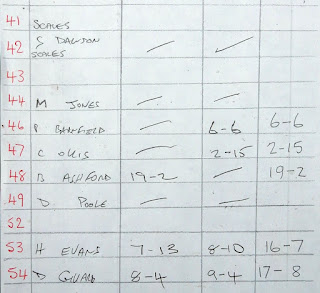 41 SCALES
42 S DAWSON SCALES
43
44 M JONES
46 P BANFIELD 6-6 6-6
47 C OLLIS 2-15 2-15
48 B ASHFORD 19-2 19-2
49 D POOLE
52
53 H EVANS 7-13 8-10 16-7
54 D 8-4 9-4 17-8